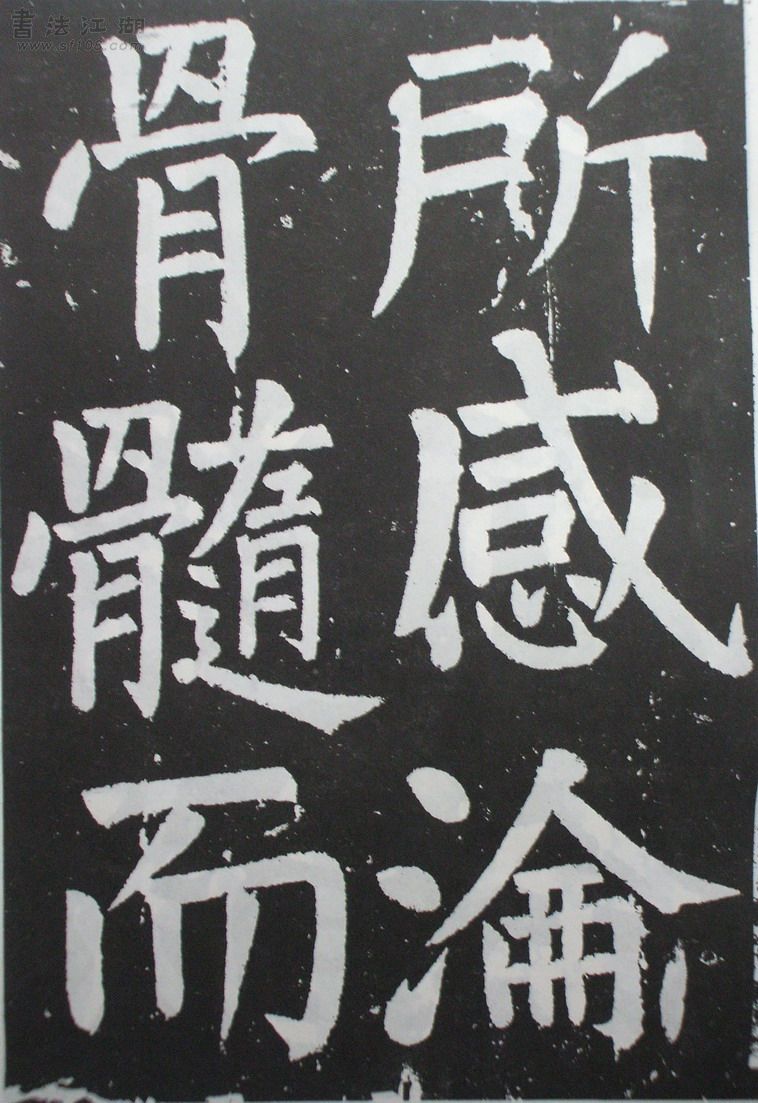 書法江湖
www.sf108.com
所感淪
骨髓而